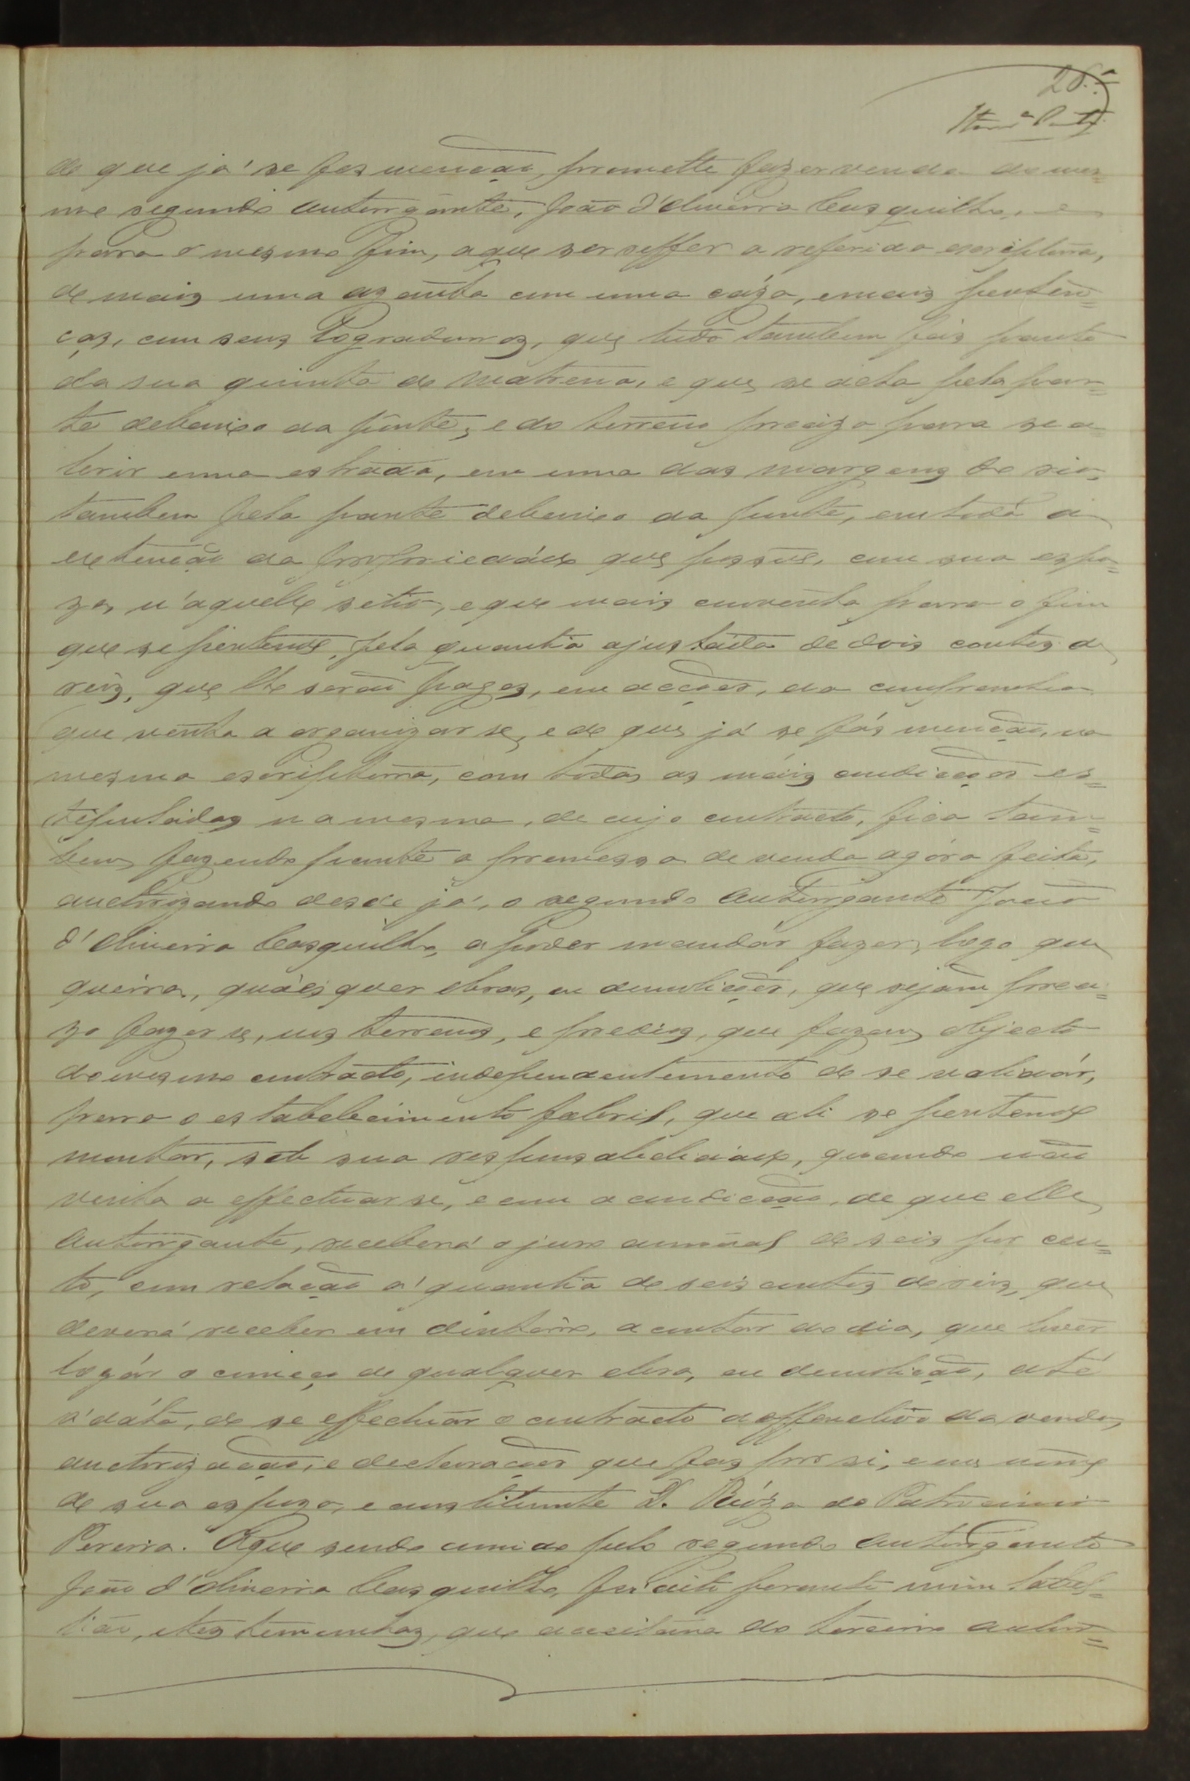 26.
de que já se fez menção, promette fazer venda ao mes=
mo segundo outorgante, João d'Oliveira Casquilho, e
para o mesmo fim, a que se reffer a referida escriptura,
de mais uma azenha com uma caza, e mais perten=
ças, com seus Logradouros, que tudo tambem faz parte
da sua quinta de Matrena, e que se acha pela par=
te debaixo da ponte, e do terreno precizo para se a
brir uma estrada, em uma das margens do rio,
tambem pela parte debaixo da ponte, em toda a
extenção da propriedade que possue, com sua espo=
za, n'aquelle sitio, e que mais convenha para o fim
que se pertende, pela quantia ajustada de dois contos de
reis, que lhe serão pagos, em acções, da companhia
que venha a organizar se, e de que já se fás menção, na
mesma escriptura, com todas as máis condicções es=
tipuladas na mesma, de cujo contracto, fica tam=
bem fazendo parte a promessa de venda agóra feita,
auctorizando desde já, o segundo outorgante João
d'Oliveira Casquilho, a poder mandár fazer, logo que
queira, quáes quer obras, ou demolições, que sejam preci=
zo fazer se, nos terrenos, e predios, que fazem objecto
do mesmo contracto, independentemente de se realizár,
para o estabelecimento fabril, que ali se pertende
montar, sob sua responsabilidade, quando não
venha a effectuar se, e com a condicção, de que elle
outorgante, receberá o juro annual de seis por cen=
to, com relação á quantia de seis contos de reis, que
deverá receber em dinheiro, a contar do dia, que tiver
logár o começo de qualquer obra, ou demolição, até
á dáta, de se effectuar o contracto deffenetivo da venda,
auctorização, e declarações que faz por si, e em nome
de sua espoza, e constituinte D. do Patrocinio
Pereira. O que sendo ouvido pelo segundo outorgante
João d'Oliveira Casquilho, foi dito perante mim tabel=
lião, e testemunhas, que aceitava do terceiro outor=